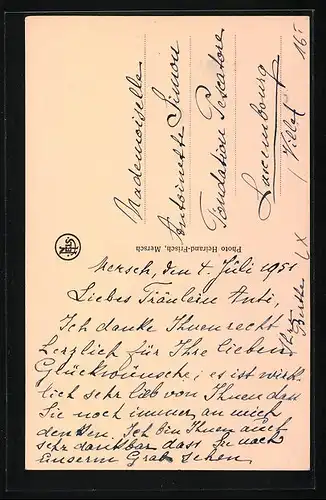 Mersch, den 4. Juli 1951
Liebes Fräulein Anti,
Ich danke Ihnen recht
herzlich für Ihre lieben
Glückwünsche; es ist wirk-
lich sehr lieb von Ihnen dass
Sie noch immer an mich
denken. Ich bin Ihnen auch
sehr dankbar dass Sie nach
unserm Grab sehen
Berthe
Photo Heirand-Frisch, Mersch
Mademoiselle
Antoinette Simon
Fondation Pescatore
Luxembourg
(Ville)
16